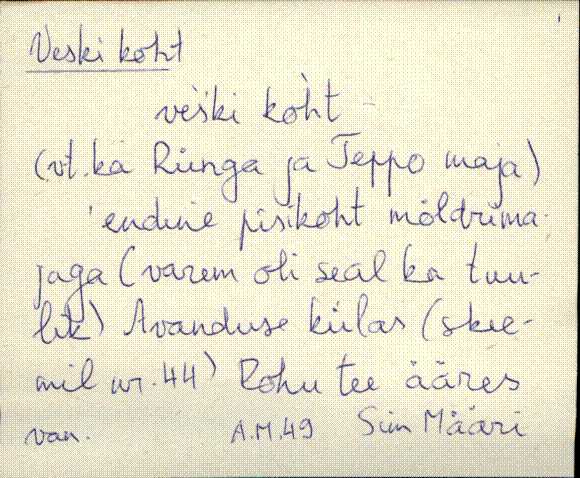 Veski koht
vèški kòht -
(vt. ka Rünga ja Teppo maja)
'endine pisikoht möldrima-
jaga (varem oli seal ka tuu-
lik) Avanduse külas (skee-
mil nr. 44) Rohu tee ääres
van. A.M.49 Siim Määri